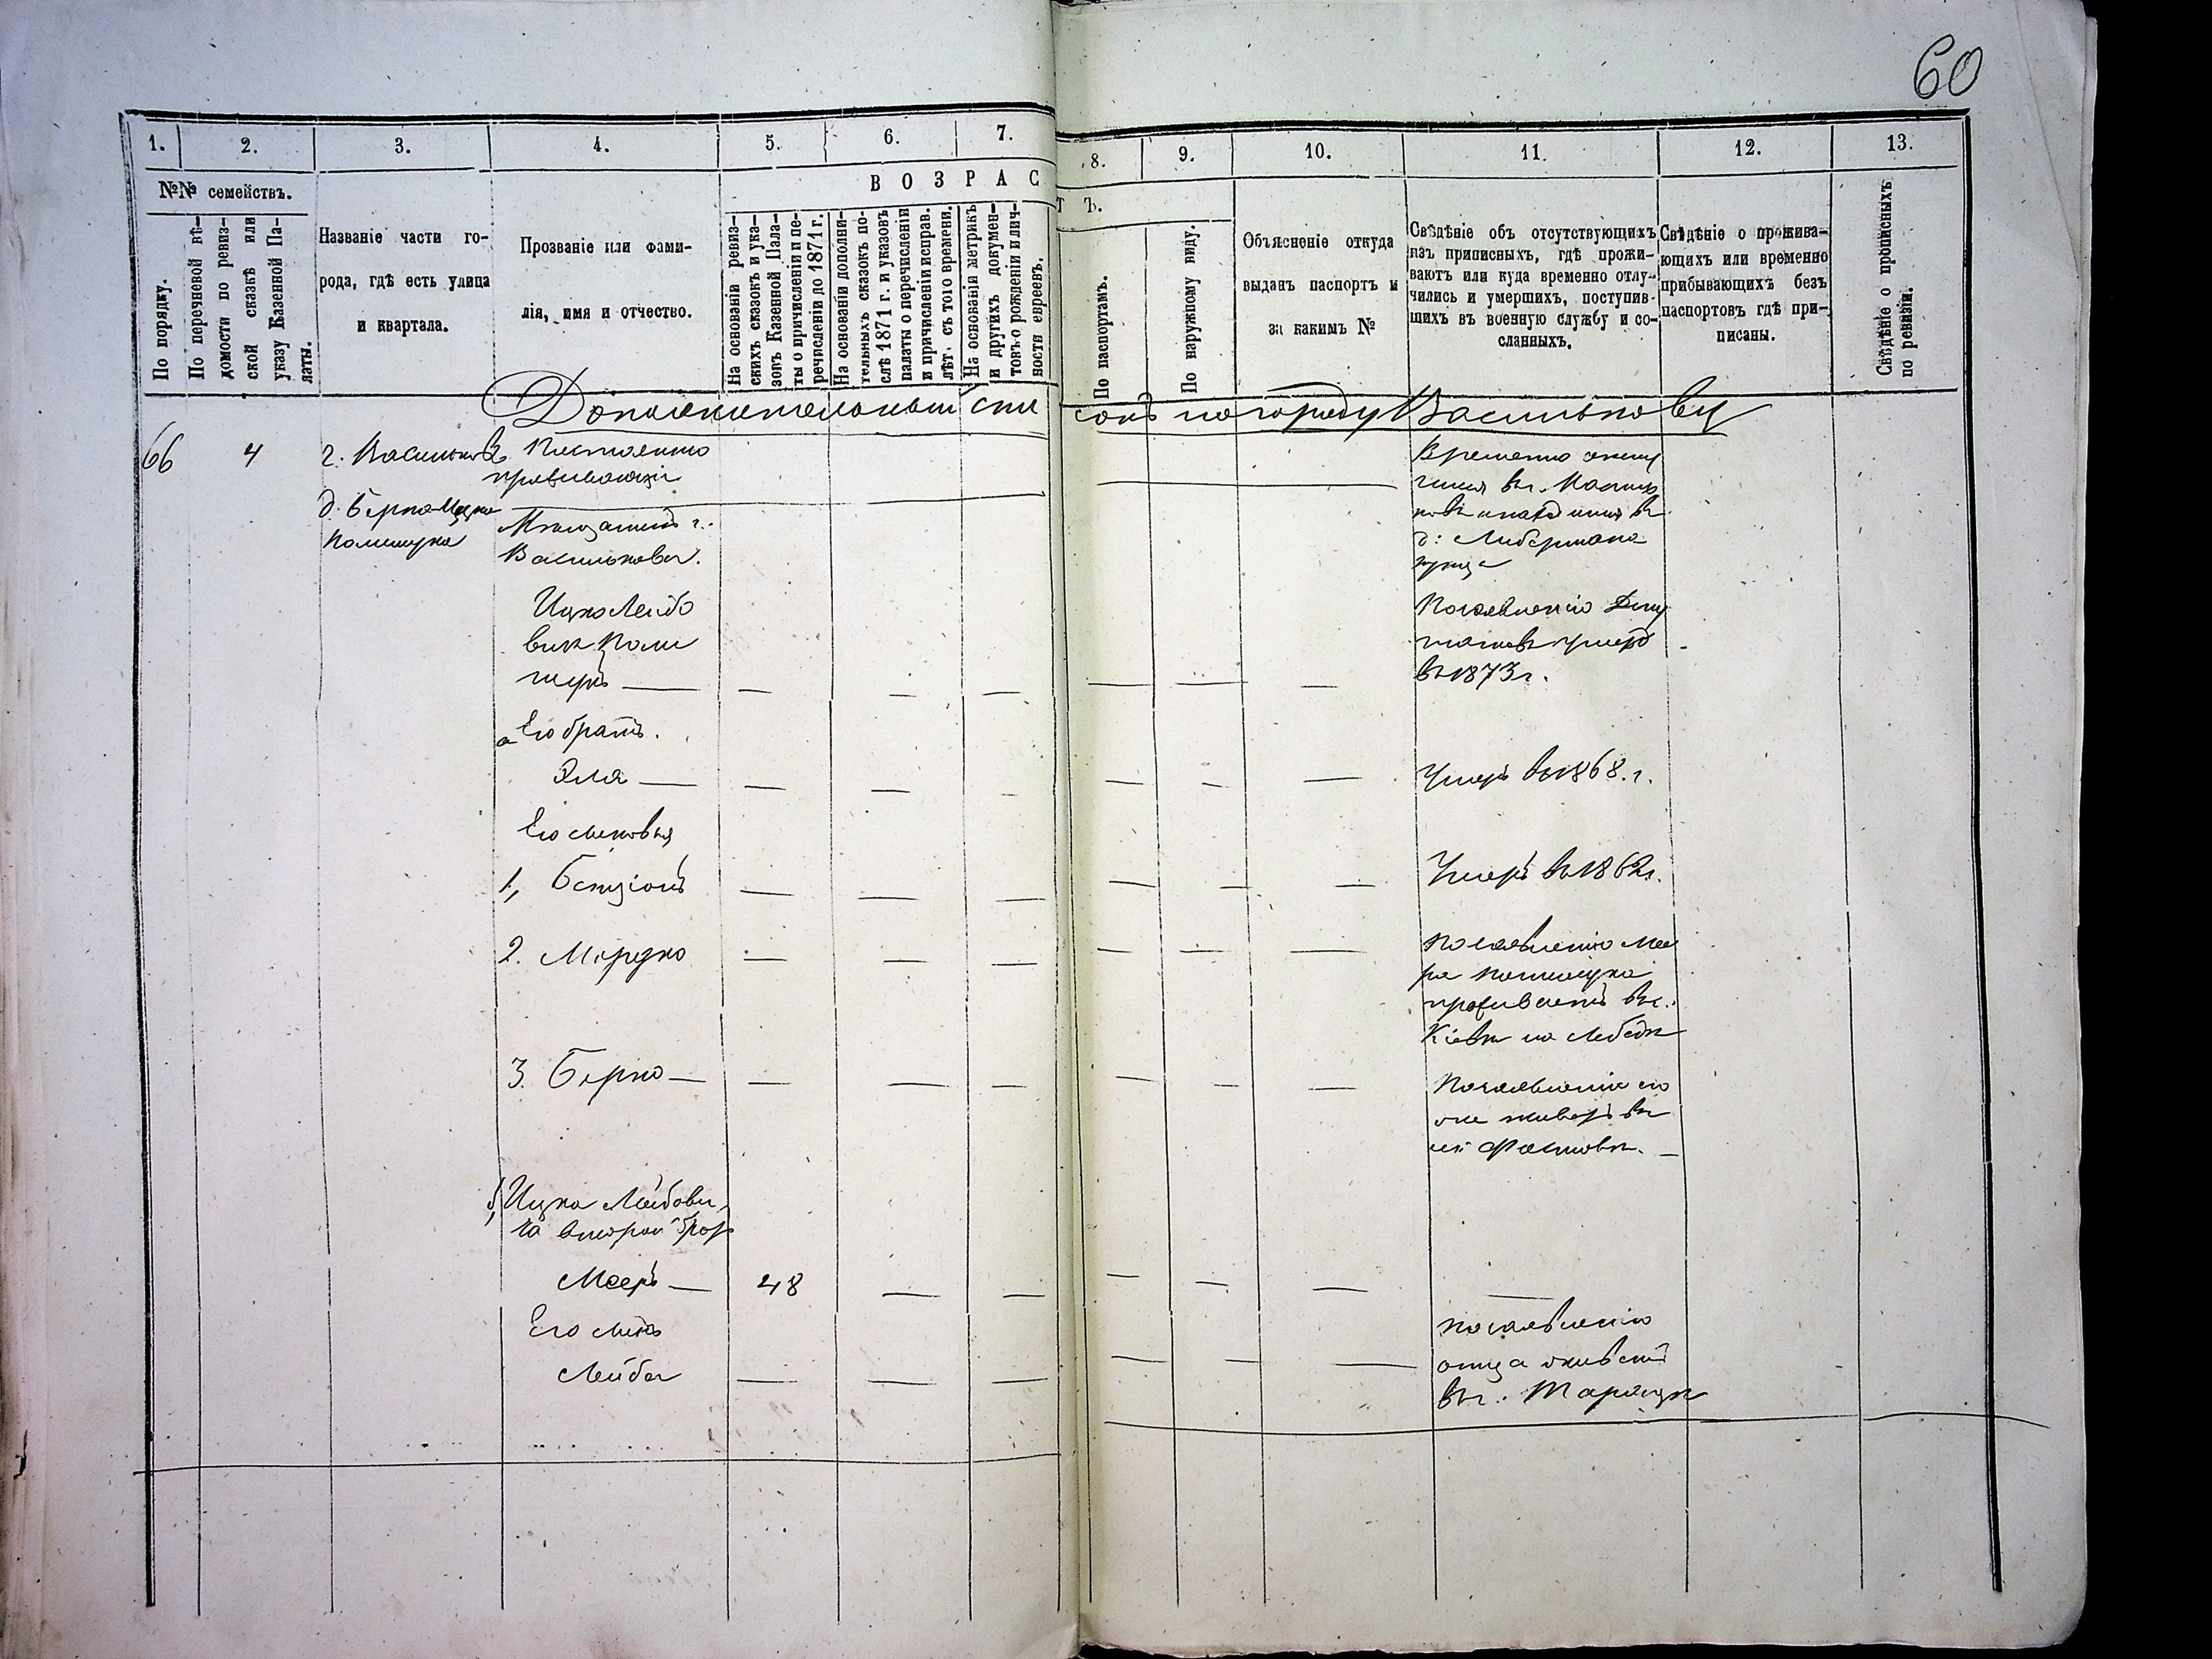 60
1. 2. 3. 4. 5. 6. 7. 8. 9. 10. 11. 12. 13.
№№ семействъ.
В О З Р А С Т Ъ.
По порядку.
По перечневой вѣ-
домости по ревиз-
ской сказкѣ или
указу Казенной Па-
латы.
Названіе части го-
рода, гдѣ есть улица
и квартала.
Прозваніе или фами-
лія, имя и отчество.
На основаніи ревиз-
скихъ сказокъ и ука-
зовъ Казенной Пала-
ты о причисленіи и пе-
речисленіи до 1871 г.
На основаніи дополни-
тельныхъ сказокъ по-
слѣ 1871 г. и указовъ
палаты о перечисленіи
и причисленіи исправ.
лѣт. съ того времени.
На основаніи метрикъ
и другихъ докумен-
товъ о рожденіи и лич-
ности евреевъ.
По паспортамъ.
По наружному виду.
Объясненіе откуда
выданъ паспортъ и
за какимъ №
Свѣдѣніе объ отсутствующихъ
изъ приписныхъ, гдѣ прожи-
ваютъ или куда временно отлу-
чились и умершихъ, поступив-
шихъ въ военную службу и со-
сланныхъ.
Свѣдѣніе о прожива-
ющихъ или временно
прибывающихъ безъ
паспортовъ гдѣ при-
писаны.
Свѣдѣніе о прописныхъ
по ревизіи.
Дополнительный списокъ по городу Василькову
66 4 г. Васильковъ
д. Берка Ицка
Полищука
Постоянно
проживающіе
Мѣщанинъ г.
Василькова.
Временно
въ г.
д: Либермана
купца
Ицко Лейбо
вичъ Поли
щукъ — — — — — — —
По заявленію Депу
татовъ умеръ
въ 1873 г.
а Его братъ.
Эля — — — — — — — Умеръ въ 1868. г.
Его сыновья
1, Бенціонъ — — — — — — Умеръ въ 1862 г.
2. Мордко — — — — — —
По заявленію Мее
ра Полищука
проживаетъ въ г.
Кіевѣ на Лебедк
3. Берко — — — — — — —
По заявленію его
въ
м: Фастовѣ. —
б, Ицка Лейбови
ча второй брат
Мееръ — 48 — — — — — —
Его сынъ
Лейба — — — — — —
По заявленію
отца живетъ
въ г. Таращѣ